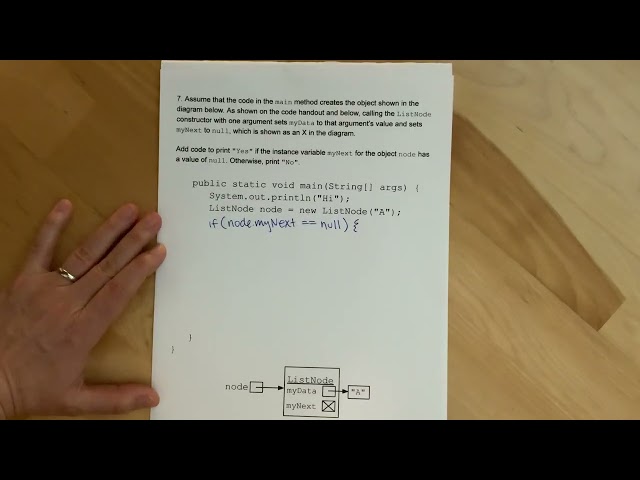 7. Assume that the code in the main method creates the object shown in the
diagram below. As shown on the code handout and below, calling the ListNode
constructor with one argument sets myData to that argument's value and sets
myNext to null, which is shown as an X in the diagram.
Add code to print "Yes" if the instance variable myNext for the object node has
a value of null. Otherwise, print "No".
public static void main(String[] args) {
System.out.println("Hi");
ListNode node = new ListNode("A");
if(node.myNext == null) {
}
}
ListNode
node
myData
"A"
myNext